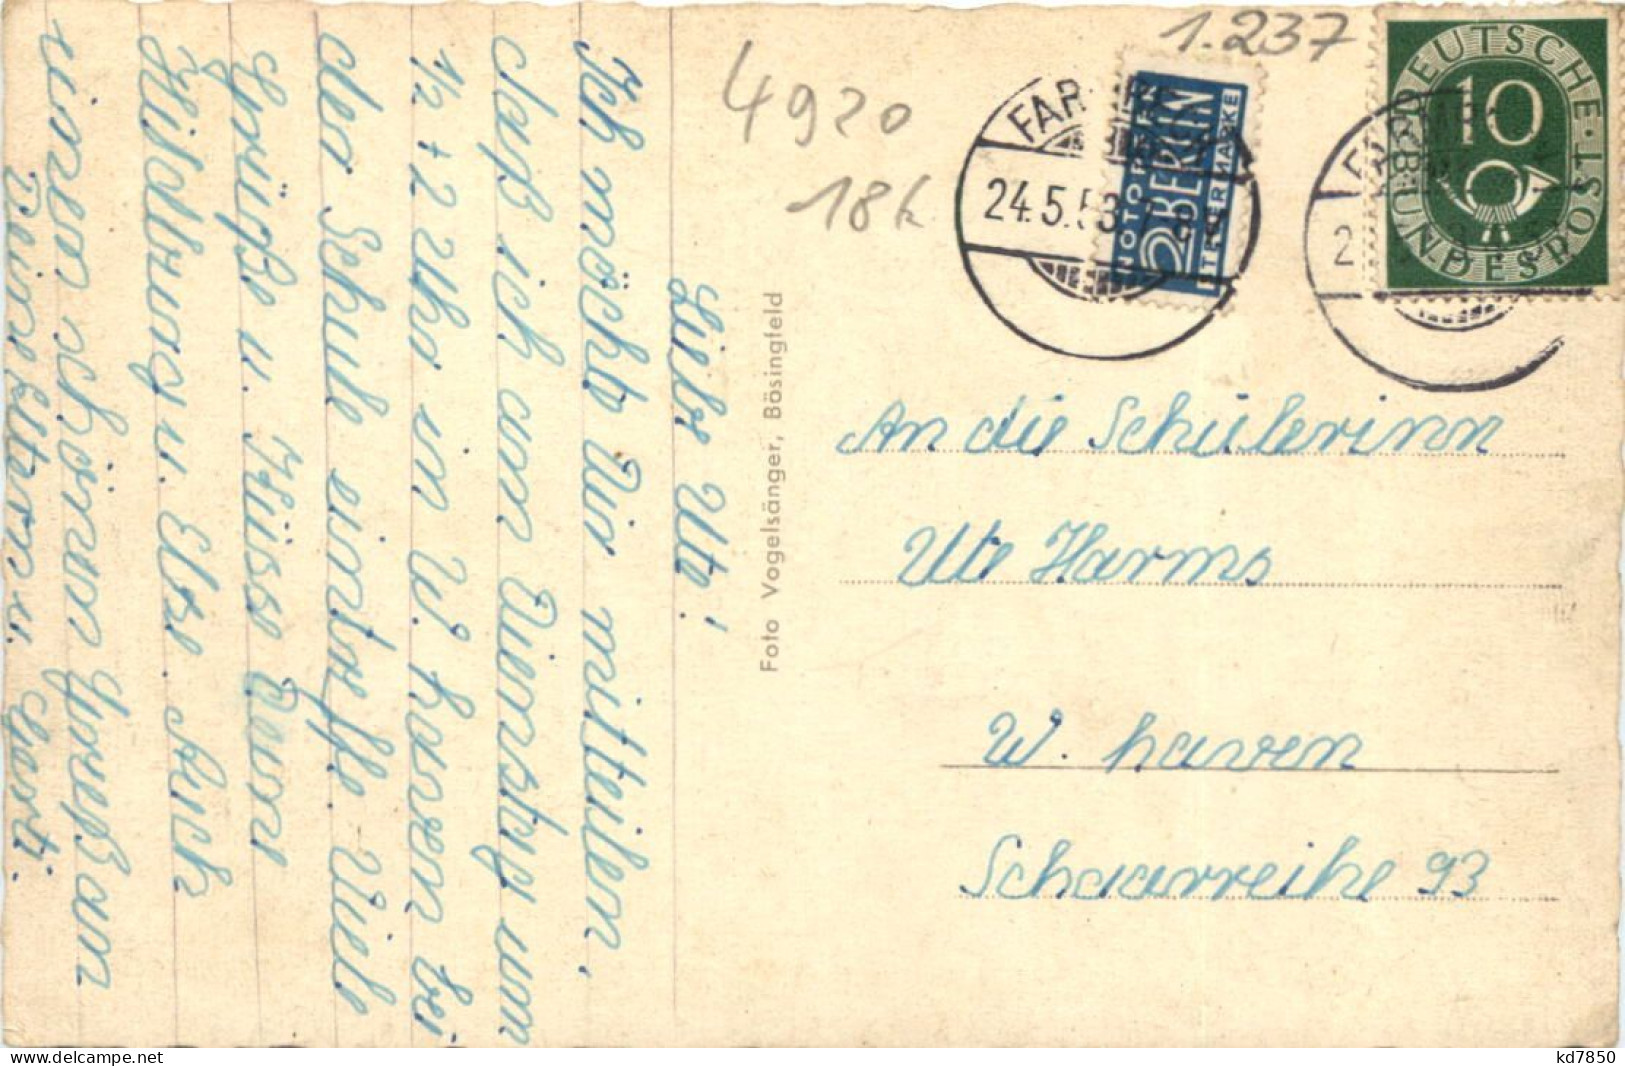 Liebe Ute!
Ich möchte Dir mitteilen,
daß ich am Dienstag um
1/2 + 2 Uhr in W. haven bei
der Schule eintreffe. Viele
Grüße u. Küsse Deine
Hildburg u. Else. Auch
einen schönen Gruß an
Deine Eltern u. Gerti.
Foto Vogelsänger, Bösingfeld
4920
18k
1.237
24.5.53
NOTOPFER
2 BERLIN
STEUERMARKE
DEUTSCHE BUNDESPOST
10
An die Schülerinn
Ute Harms
W. haven
Schaarreihe 93
delcampe.net
kd7850